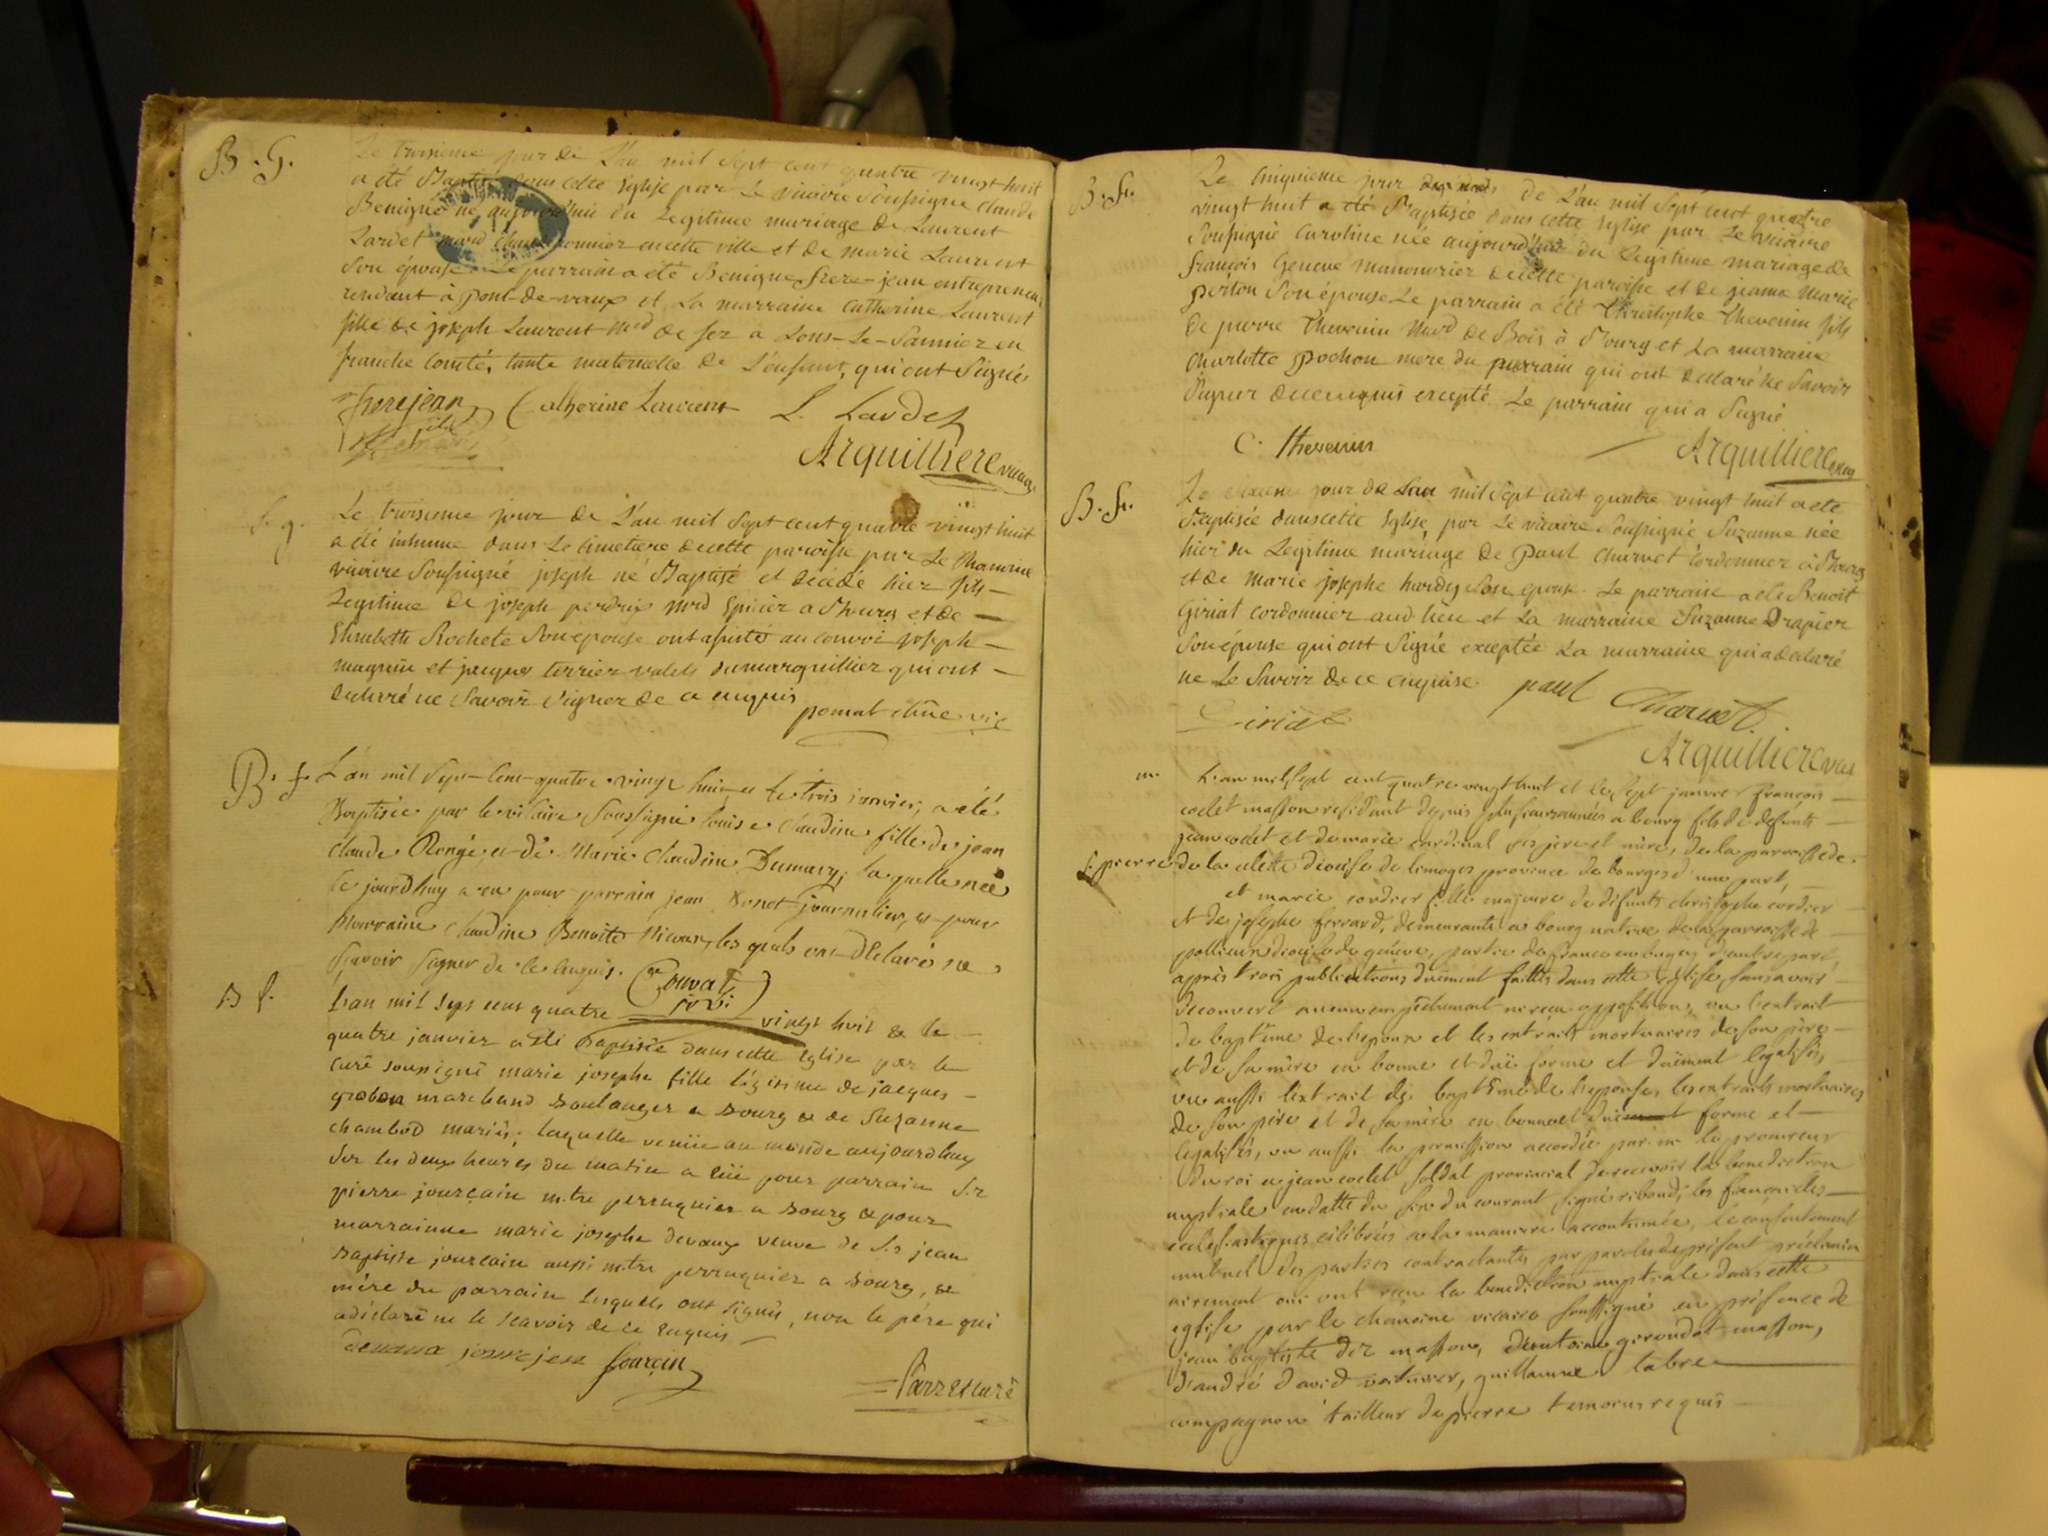 B. G.
Le troisieme jour de L'an mil Sept cent quatre vingt huit
a été Baptisé dans cette Eglise par Le vicaire Soussigné Claude
Benigne né aujourd'hui du Legitime mariage de Laurent
Lardet en cette ville et de marie Laurent
Son épouse Le parrain a été Benigne frere-jean entrepreneur
rendant à pont-de-vaux et La marraine Catherine Laurent
fille de joseph Laurent Md de fer a Lons-Le-Saunier en
franche Comté, tante maternelle de L'enfant, qui ont Signés
frerejean Catherine Laurent L. Lardet
Arquilliere vicaire
S. g.
Le troisieme jour de L'an mil Sept cent quatre vingt huit
a été inhumé dans Le Cimetiere de cette paroisse par Le Chanoine
vicaire Soussigné joseph né Baptisé et décédé hier fils
Legitime de joseph perdrix Md Epicier a Bourg et de
Elisabeth Rochete Son epouse ont assisté au convoi joseph
magnin et jacques terrier valets du marguillier qui ont
déclaré ne Savoir Signer de ce enquis
vic
B. f.
L'an mil Sept-Cent-quatre-vingt huit et le trois janvier, a été
Baptisée par le vicaire Soussigné Louise Claudine fille de jean
Claude Rongé et de Marie Claudine Dumary, laquelle née
le jourdhuy a eu pour parrain jean Donet journalier, et pour
Marraine Claudine Benoite les quels ont déclaré ne
Sçavoir Signer de ce enquis.
B f.
L'an mil sept cent quatre vingt huit & le
quatre janvier a été Baptisée dans cette Eglise par le
curé soussigné marie josephe fille légitime de jacques
grobon marchand Boulanger a Bourg & de Suzanne
chambod mariés; laquelle venüe au monde aujourdhuy
Sur les deux heures du matin a eüe pour parrain S.r
pierre jourçain m.tre perruquier a Bourg & pour
marrainne marie josephe devaux veuve de S.r jean
Baptiste jourçain aussi m.tre perruquier a Bourg, &
mére du parrain lesquels ont signés, non le pére qui
a déclaré ne le sçavoir de ce enquis
jourçain
curé
B. f.
Le Cinquieme jour de L'an mil Sept cent quatre
vingt huit a été Baptisée dans cette Eglise par Le vicaire
Soussigné Caroline née aujourd'hui du Legitime mariage de
françois Geneve manouvrier de cette paroisse et de jeanne Marie
periton Son épouse Le parrain a été Christophe Thevenin fils
de pierre Thevenin Md de Bois à Bourg et La marraine
Charlotte Pochon mere du parrain qui ont declaré ne Savoir
Signer de ce enquis excepté Le parrain qui a Signé
C. Thevenin Arquilliere vicaire
B. f.
Le sixieme jour de L'an mil Sept cent quatre vingt huit a été
Baptisée dans cette Eglise par Le vicaire Soussigné Suzanne née
hier du Legitime mariage de Paul Charvet Cordonnier à Bourg
et de Marie josephe Son epouse. Le parrain a été Benoit
Giriat Cordonnier aud. lieu et La marraine Suzanne Drapier
Son épouse qui ont Signé exceptée La marraine qui a déclaré
ne Le Savoir de ce enquise. paul Charvet
Giriat
Arquilliere vic
m.
L'an mil Sept cent quatre vingt huit et le Sept janvier françois
coclet masson residant depuis plusieurs années a bourg fils de défunts
jean coclet et de marie cardinal Ses pere et mère, de la parroisse de
S. pierre de la diocése de limoges province de bourges d'une part,
et marie cordier fille majeure de défunts christophe cordier
et de josephe ferrard, demeurante a bourg native de la parroisse de
pollieu diocése de genève, partie de france en bugey d'autre part,
après trois publications düement faittes dans cette Eglise, sans avoir
decouvert aucun empéchement ni reçu opposition, vu l'extrait
de baptéme de l'epoux et les extraits mortuaires de son père
et de sa mére en bonne et düe forme et düement legalisés,
vu aussi l'extrait de baptéme de l'epouse, les extraits mortuaires
de son père et de sa mére en bonne et düe forme et
legalisés, vu aussi la permission accordée par m. le procureur
du roi a jean coclet soldat provincial de recevoir la benediction
nuptiale en datte du six du courant signé riboud; les fiançailles
ecclésiastiques célébrées a la maniere accoutumée, le consentement
mutuel des parties contractantes par paroles de présent préalablement
ouï ont reçu la benediction nuptiale dans cette
eglise par le chanoine vicaire soussigné en présence de
jean baptiste masson, d'antoine gerondet masson,
d'andré david voiturier, guillaume labre
compagnon tailleur de pierre temoins requis